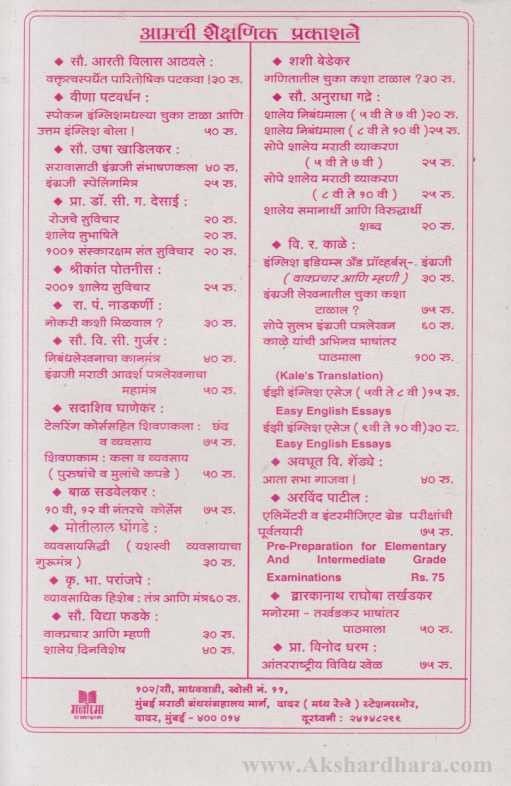 आमची शैक्षणिक प्रकाशने
◆ सौ. आरती विलास आठवले :
वक्तृत्वस्पर्धेत पारितोषिक पटकवा ! ३० रु.
◆ वीणा पटवर्धन :
स्पोकन इंग्लिशमधल्या चुका टाळा आणि
उत्तम इंग्लिश बोला ! ५० रु.
◆ सौ. उषा खाडिलकर :
सरावासाठी इंग्रजी संभाषणकला ४० रु.
इंग्रजी स्पेलिंगमित्र २५ रु.
◆ प्रा. डॉ. सी. ग. देसाई :
रोजचे सुविचार २० रु.
शालेय सुभाषिते २० रु.
१००१ संस्कारक्षम संत सुविचार २० रु.
◆ श्रीकांत पोतनीस :
२००१ शालेय सुविचार २५ रु.
◆ रा. पं. नाडकर्णी :
नोकरी कशी मिळवाल ? ३० रु.
◆ सौ. वि. सी. गुर्जर :
निबंधलेखनाचा कानमंत्र ४० रु.
इंग्रजी मराठी आदर्श पत्रलेखनाचा
महामंत्र ५० रु.
◆ सदाशिव घाणेकर :
टेलरिंग कोर्ससहित शिवणकला : छंद
व व्यवसाय ७५ रु.
शिवणकाम : कला व व्यवसाय
( पुरुषांचे व मुलांचे कपडे ) ५० रु.
◆ बाळ सडवेलकर :
१० वी, १२ वी नंतरचे कोर्सेस ७५ रु.
◆ मोतीलाल धोंगडे :
व्यवसायसिद्धी ( यशस्वी व्यवसायाचा
गुरूमंत्र ) ३० रु.
◆ कृ. भा. परांजपे :
व्यावसायिक हिशेब : तंत्र आणि मंत्र ६० रु.
◆ सौ. विद्या फडके :
वाक्प्रचार आणि म्हणी ३० रु.
शालेय दिनविशेष ४० रु.
◆ शशी बेडेकर
गणितातील चुका कशा टाळाल ? ३० रु.
◆ सौ. अनुराधा गद्रे :
शालेय निबंधमाला ( ५ वी ते ७ वी ) २० रु.
शालेय निबंधमाला ( ८ वी ते १० वी ) २५ रु.
सोपे शालेय मराठी व्याकरण
( ५ वी ते ७ वी ) २५ रु.
सोपे शालेय मराठी व्याकरण
( ८ वी ते १० वी ) २५ रु.
शालेय समानार्थी आणि विरुद्धार्थी
शब्द २० रु.
◆ वि. र. काळे :
इंग्लिश इडियम्स अँड प्रॉव्हर्बस्- इंग्रजी
( वाक्प्रचार आणि म्हणी ) ३० रु.
इंग्रजी लेखनातील चुका कशा
टाळाल ? ७५ रु.
सोपे सुलभ इंग्रजी पत्रलेखन ६० रु.
काळे यांची अभिनव भाषांतर
पाठमाला १०० रु.
(Kale's Translation)
ईझी इंग्लिश एसेज ( ५वी ते ८ वी ) १५ रु.
Easy English Essays
ईझी इंग्लिश एसेज ( ९वी ते १० वी) ३० रु.
Easy English Essays
◆ अवधूत वि. शेंड्ये :
आता सभा गाजवा ! ४० रु.
◆ अरविंद पाटील :
एलिमेंटरी व इंटरमीजिएट ग्रेड परीक्षांची
पूर्वतयारी ७५ रु.
Pre-Preparation for Elementary
And Intermediate Grade
Examinations Rs. 75
◆ द्वारकानाथ राघोबा तर्खडकर
मनोरमा - तर्खडकर भाषांतर
पाठमाला ५० रु.
◆ प्रा. विनोद धरम :
आंतरराष्ट्रीय विविध खेळ ७५ रु.
मनोरमा
प्रकाशन
१०२/सी, माधववाडी, खोली नं. ११,
मुंबई मराठी ग्रंथसंग्रहालय मार्ग, दादर ( मध्य रेल्वे ) स्टेशनसमोर,
दादर, मुंबई - ४०० ०१४ दूरध्वनी : २४१४८२९९
www.Akshardhara.com